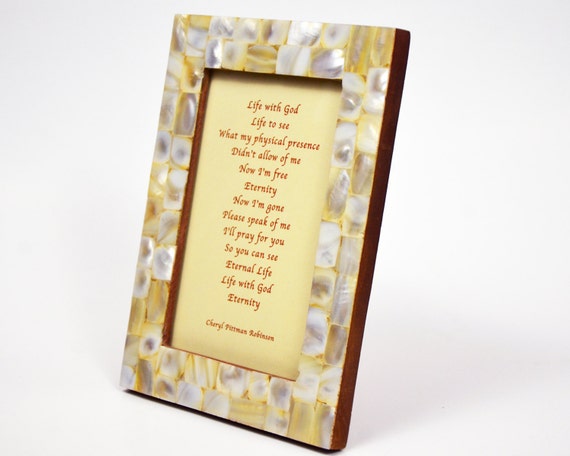 Life with God
Life to see
What my physical presence
Didn't allow of me
Now I'm free
Eternity
Now I'm gone
Please speak of me
I'll pray for you
So you can see
Eternal Life
Life with God
Eternity
Cheryl Pittman Robinson